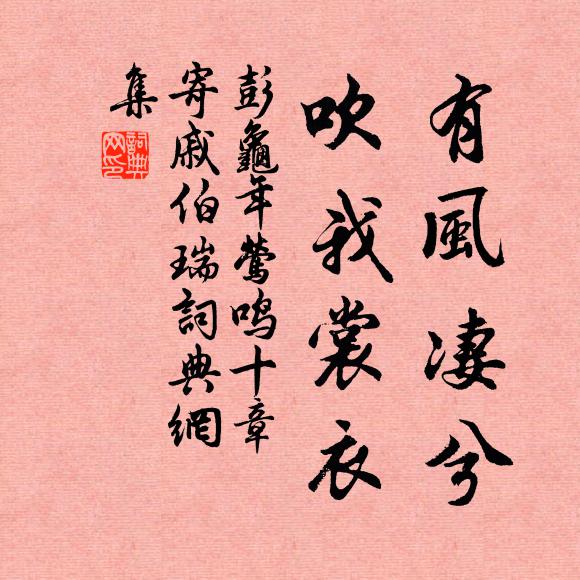 有風凄兮
吹我裳衣
彭龜年鶯鳴十章
寄戚伯瑞詞典網
集
詞典
网印